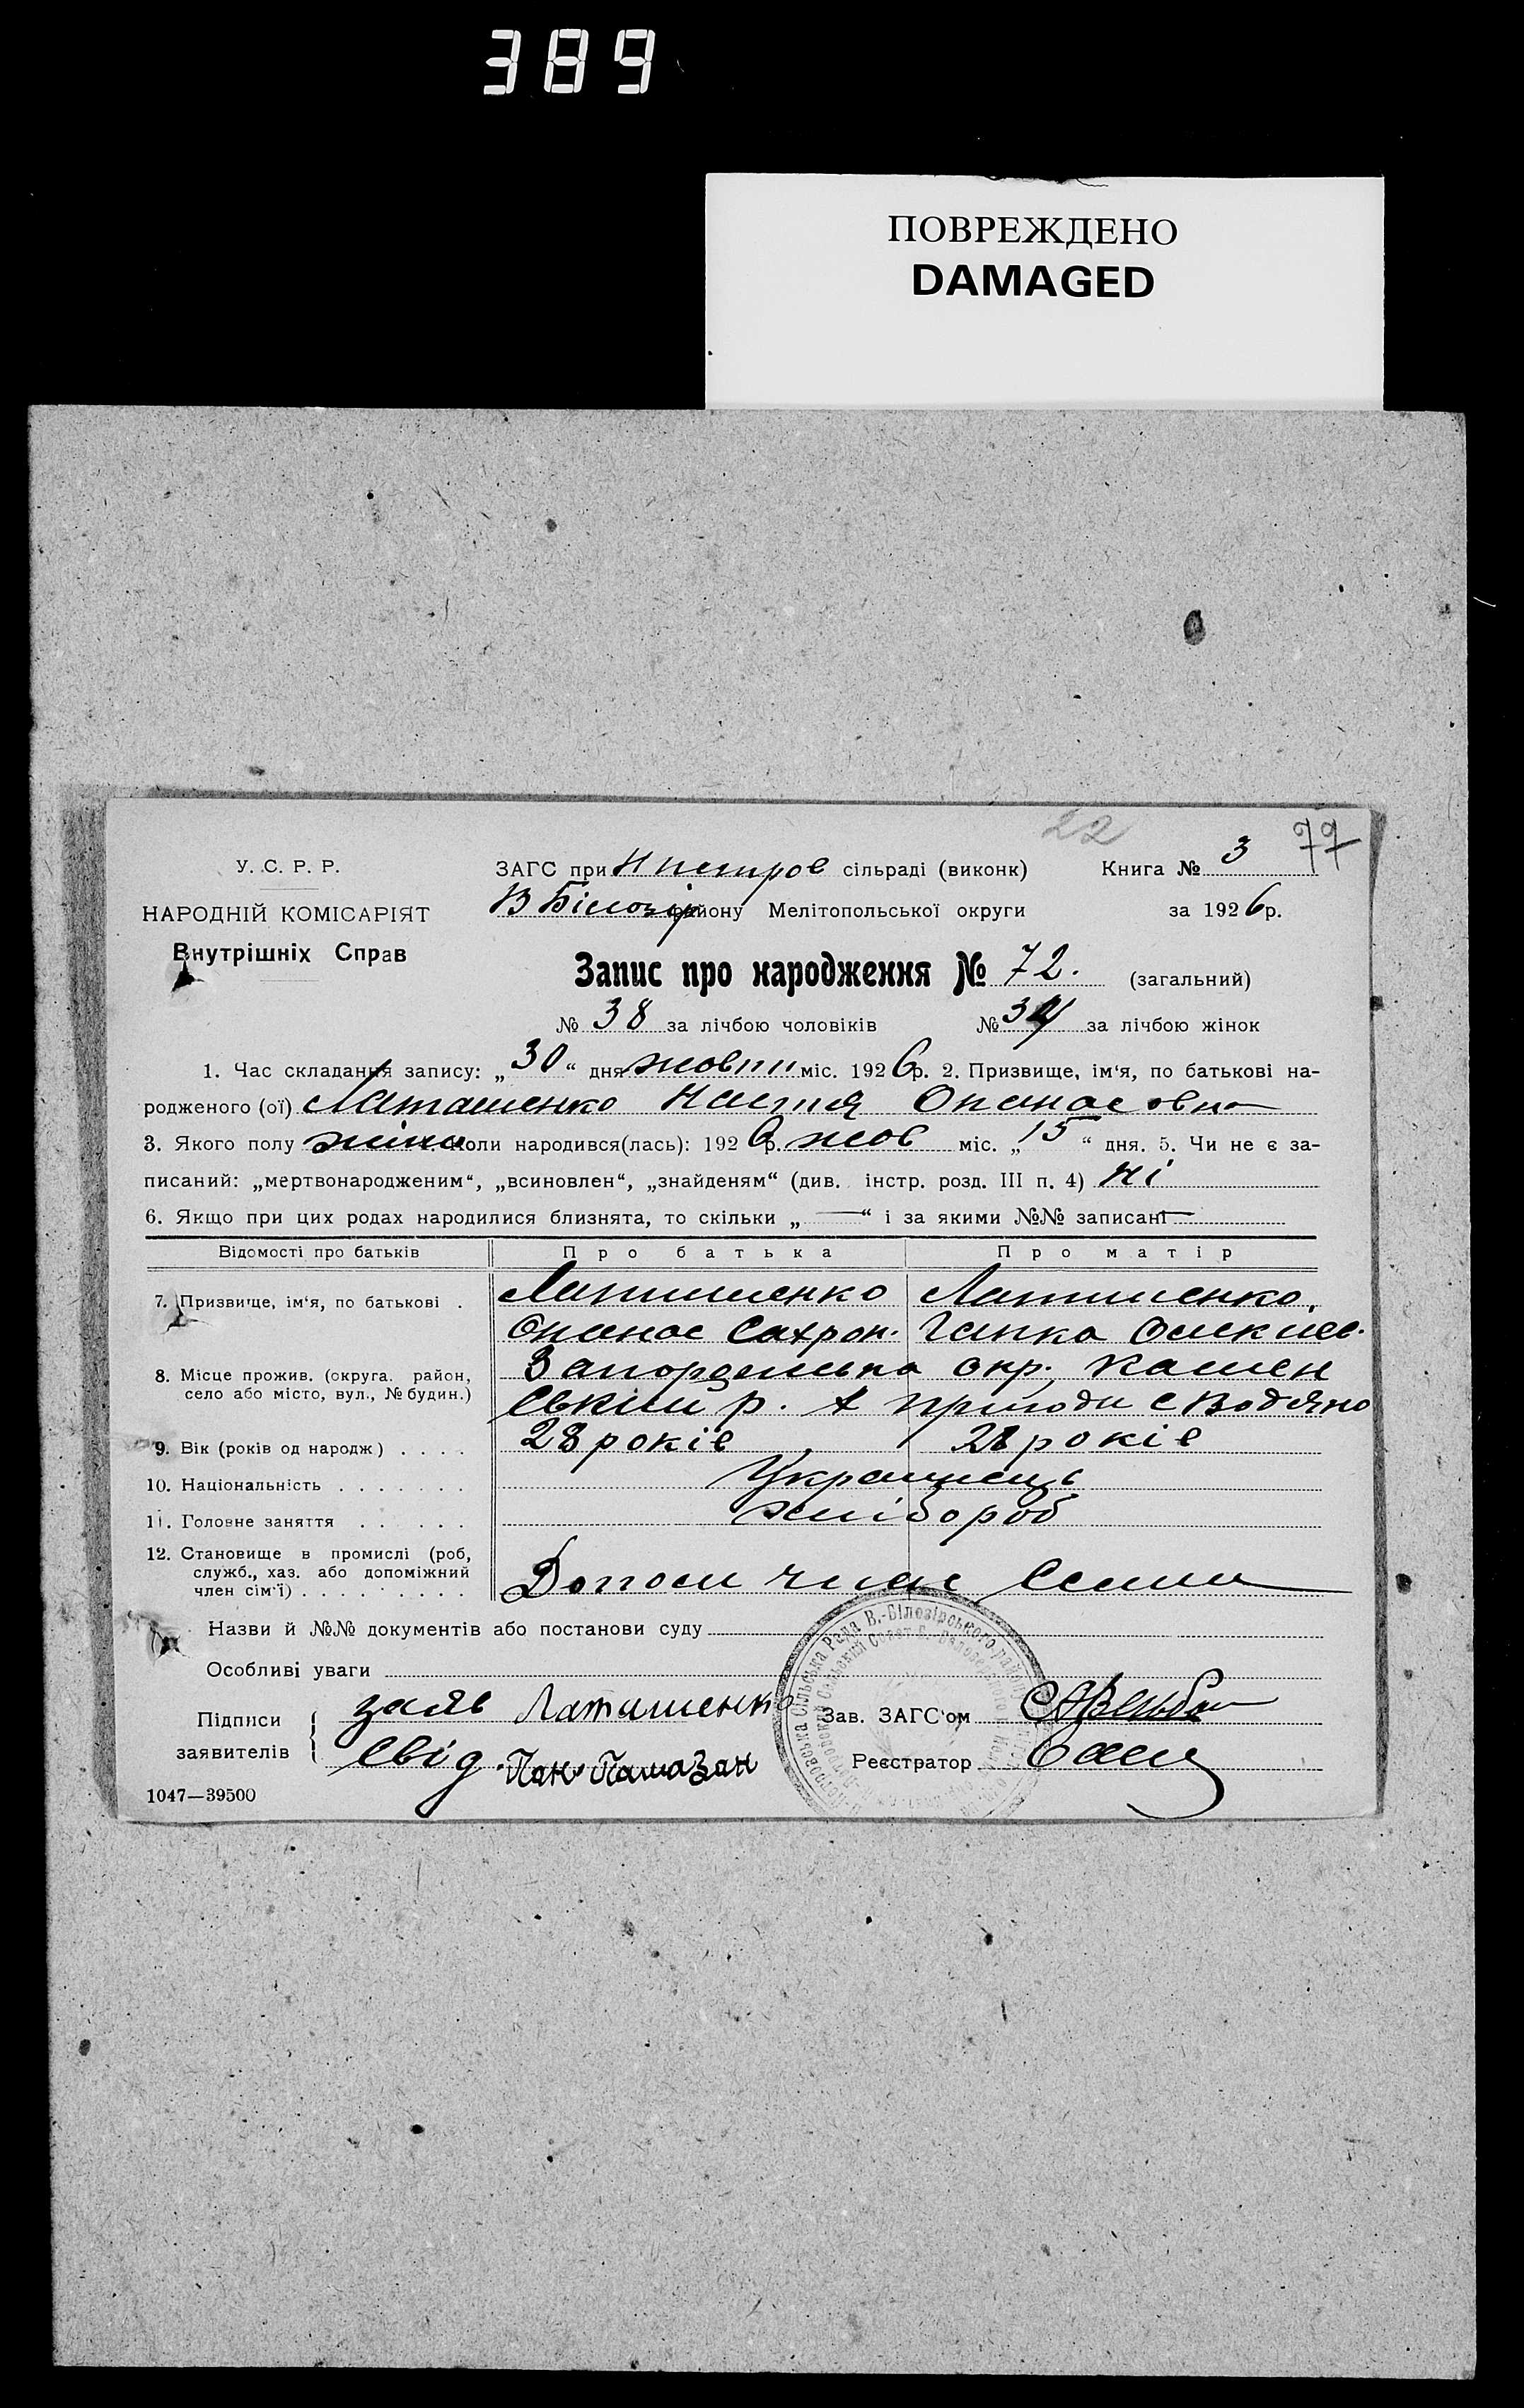 389
ПОВРЕЖДЕНО
DAMAGED
22 77
У. С. Р. Р.
НАРОДНІЙ КОМІСАРІЯТ
Внутрішніх Справ
ЗАГС при Н петров сільраді (виконк) Книга № 3
В Білозір району Мелітопольської округи за 1926 р.
Запис про народження № 72. (загальний)
№ 38 за лічбою чоловіків № 34 за лічбою жінок
1. Час складання запису: „30“ дня жовтн міс. 1926 р. 2. Призвище, ім‘я, по батькові на-
родженого (ої) Латашенко Настя Опанасовна
3. Якого полу жіно Коли народився(лась): 1926 р. жов міс. „15“ дня. 5. Чи не є за-
писаний: „мертвонародженим“, „всиновлен“, „знайденям“ (див. інстр. розд. III п. 4) ні
6. Якщо при цих родах народилися близнята, то скільки „—“ і за якими №№ записані —
Відомості про батьків Про батька Про матір
7. Призвище, ім‘я, по батькові . Латашенко Латашенко,
Опанас Сахрон. Гапка
8. Місце прожив. (округа. район, Запоріжська окр. Камен
село або місто, вул., № будин.) ський р. с Водяно
9. Вік (років од народж) . . . . 28 років 28 років
10. Національність . . . . . . . Украинець
11. Головне заняття . . . . . . хлібороб
12. Становище в промислі (роб,
служб., хаз. або допоміжний
член сім‘ї) . . . . . . . . . член
Назви й №№ документів або постанови суду
Особливі уваги
Підписи заявителів { заяв Латашенко Зав. ЗАГС‘ом
свід. Реєстратор
1047—39500